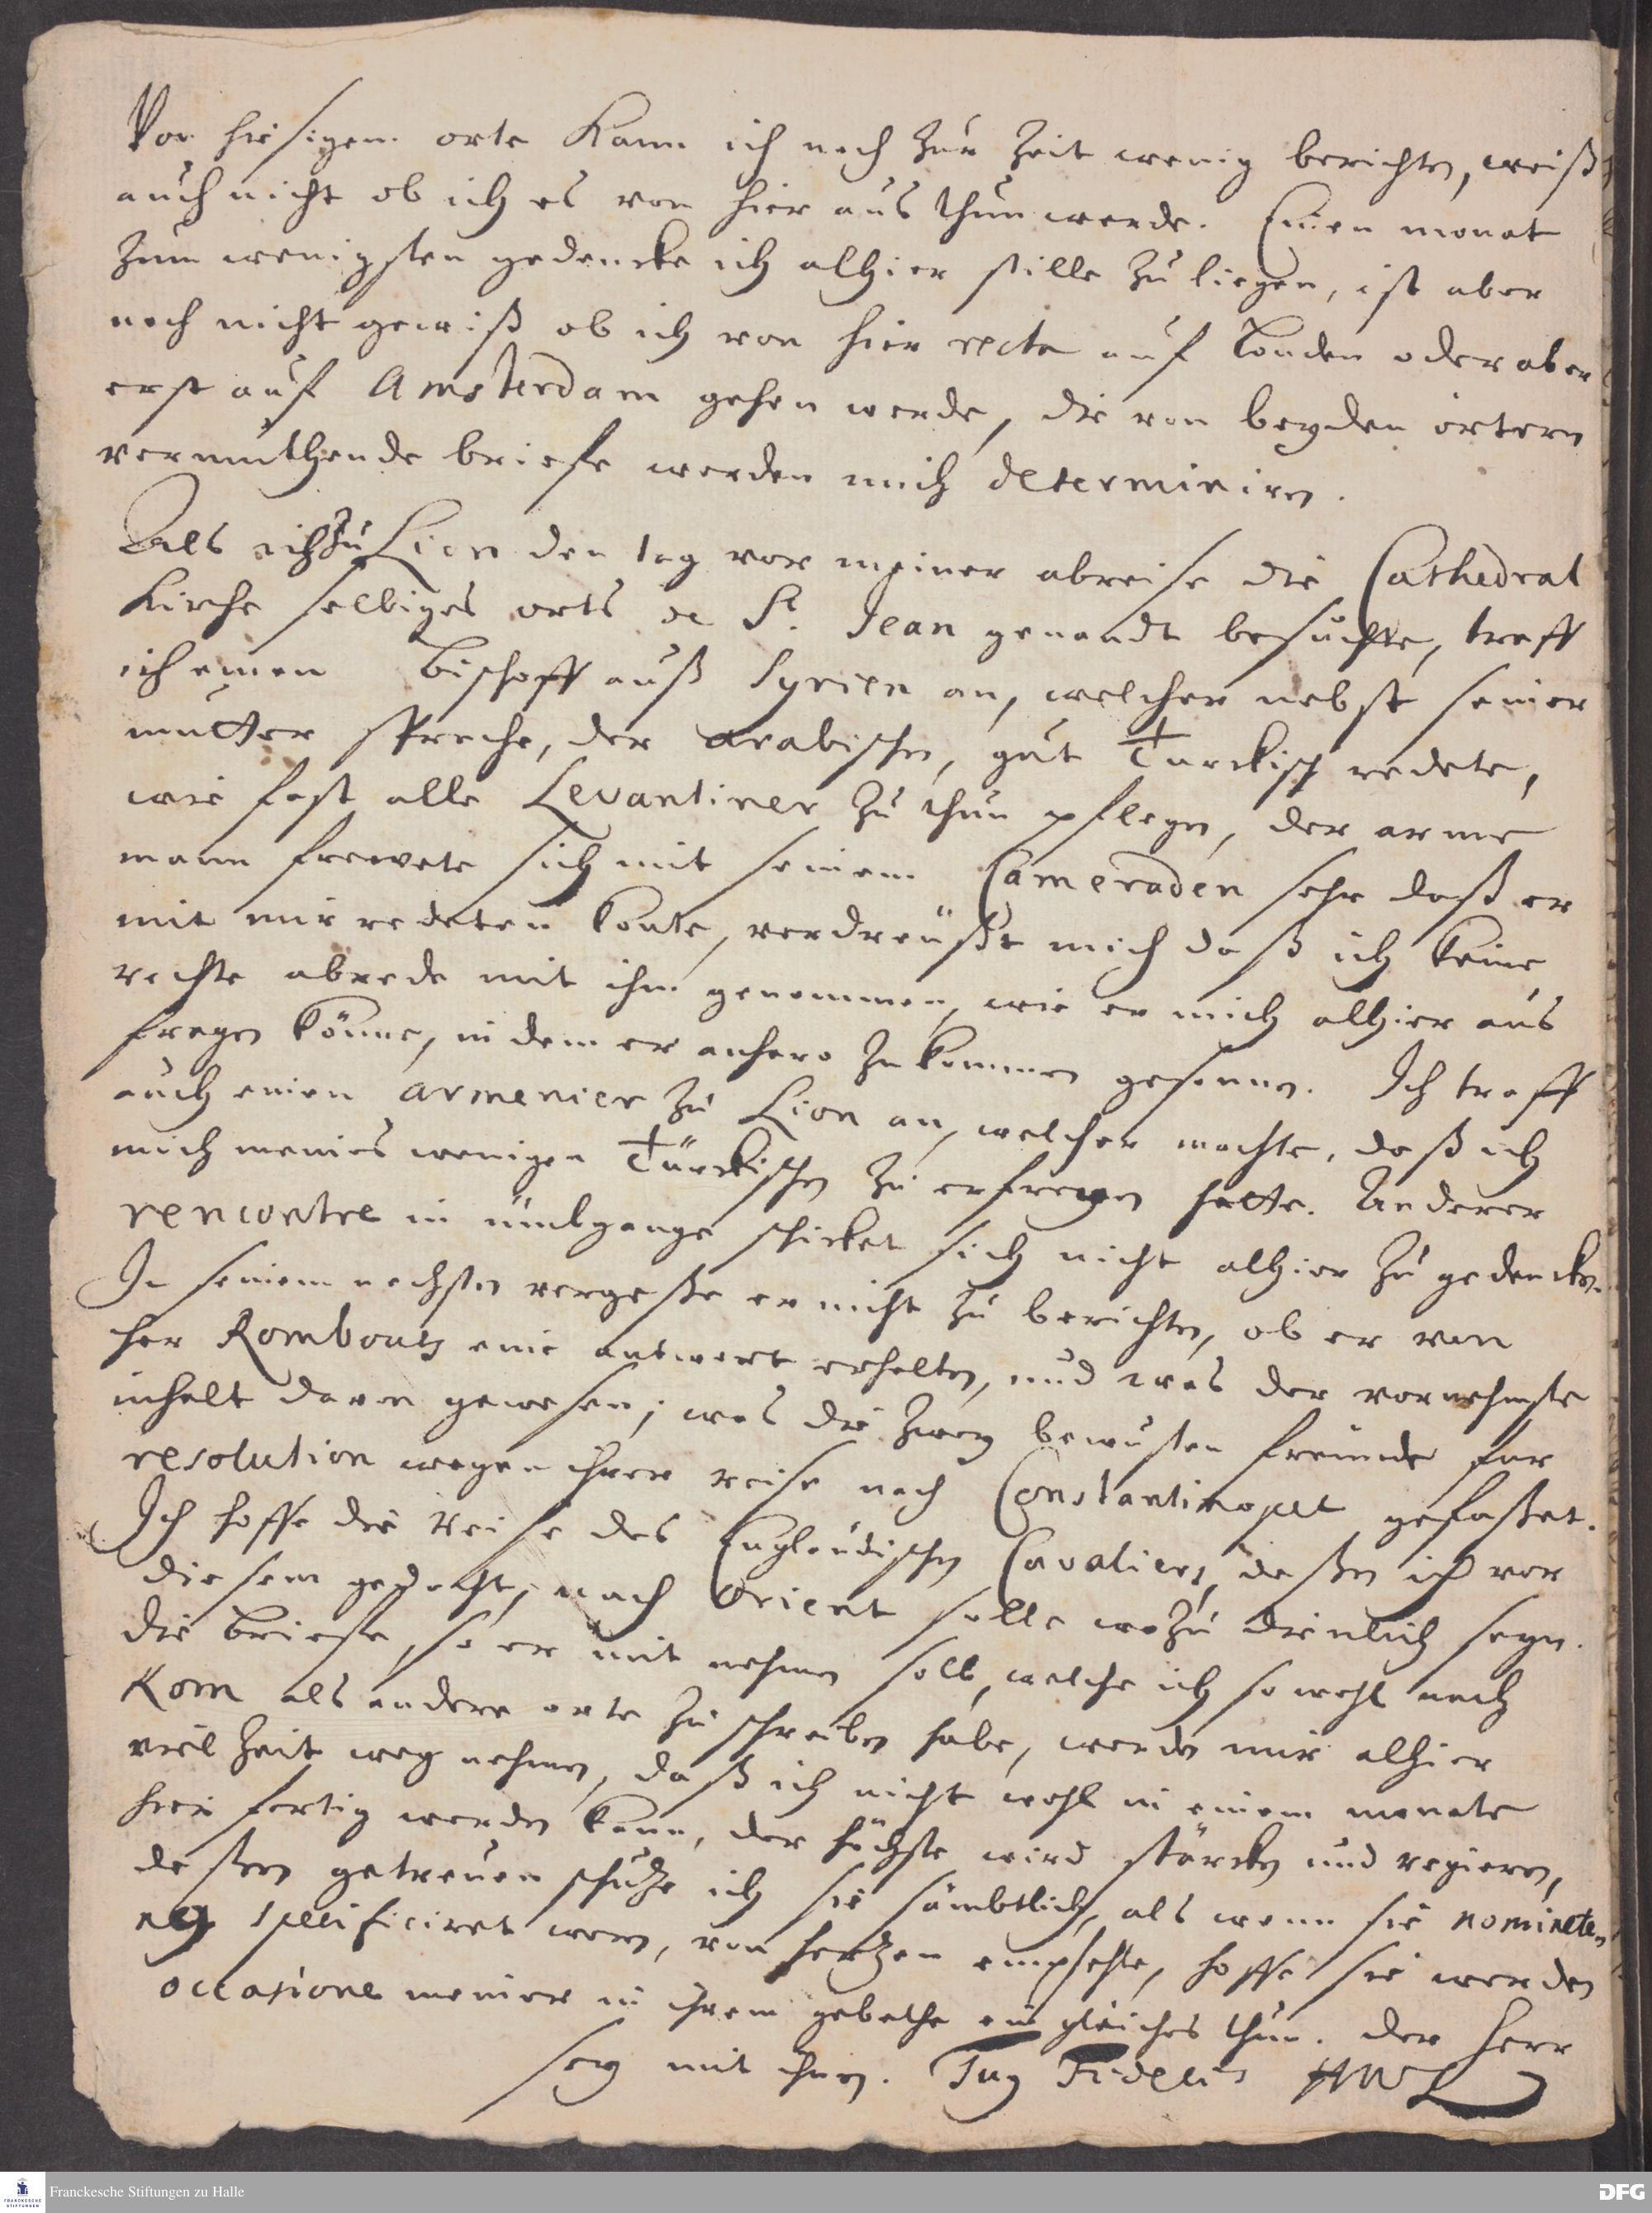 Von hiesigem orte kann ich noch zur Zeit wenig berichten, weiß
auch nicht ob ich es von hier aus thun werde. Einen monat
zum wenigsten gedencke ich alhier stille zu liegen, ist aber
noch nicht gewiß ob ich von hier recta auf Londen oder aber
erst auf Amsterdam gehen werde, die von beyden örtern
vermuthende briefe werden mich determiniren.
Als ich zu Lion den tag vor meiner abreise die Cathedral
Kirche selbiges orts S. Jean genandt besuchte, traff
ich einen Bischoff auß Syrien an, welcher nebst seiner
mutter sprache, der arabischen, gut Turckisch redete,
wie fast alle Levantiner zu thun pflegen, der arme
mann frewete sich mit seinem Cameraden sehr daß er
mit mir redeten konte, verdreüßt mich daß ich keine
rechte abrede mit ihm genommen, wie er mich alhier aus
fragen könne, in dem er anhero zu kommen gesonnen. Ich traff
auch einen Armenier zu Lion an, welcher machte, daß ich
mich meines wenigen Türckischen zu erfrewen hatte. Anderer
rencontre in ümbgange schicket sich nicht alhier zu gedencken.
In seinem nechsten vergeße er nicht zu berichten, ob er von
her Rombouts eine antwort erhalten, und was der vornehmste
inhalt davon gewesen; was die zwey bewusten freunde fur
resolution wegen ihrer reise nach Constantinopel gefaßet.
Ich hoffe die Reise des Engländischen Cavaliers, deßen ich vor
diesem gedacht, nach Orient solle wozu dienlich seyn.
Die Briefe, so er mit nehmen soll, welche ich so wohl nach
Rom als andere orte zu schreiben habe, werden mir alhier
viel Zeit weg nehmen, daß ich nicht wohl in einem monate
hier fertig werden kann, der höchste wird stärcken und regieren,
deßen getreuen schutze ich sie sämbtlich, als wenn sie nominete-
specificiret weren, von hertzen empfehle, hoffe sie werden
occasione meiner in ihrem gebethe ein gleiches thun. der Herr
sey mit ihnen. Tuq Fidelis HWL